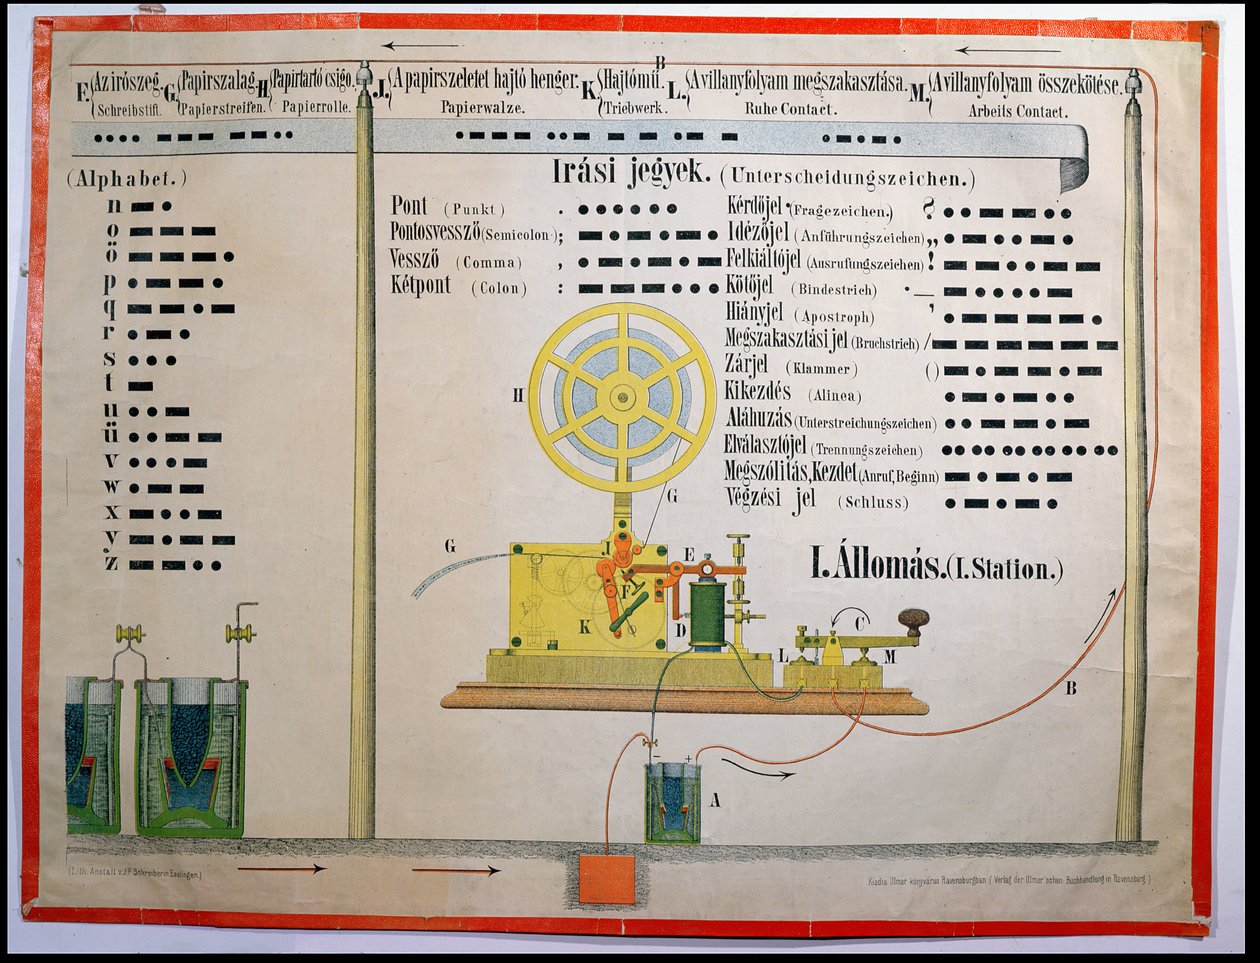 B
E. Az irószeg. G. Papirszalag. H. Papirtartó csigo. J. A papirszeletet hajtó henger. K. Hajtómű. L. A villanyfolyam megszakasztása. M. A villanyfolyam összekötése.
Schreibstift. Papierstreifen. Papierrolle. Papierwalze. Triebwerk. Ruhe Contact. Arbeits Contact.
Irási jegyek. (Unterscheidungszeichen.)
(Alphabet.)
n
o
ö
p
q
r
s
t
u
ü
v
w
x
y
z
Pont (Punkt) .
Pontosvessző (Semicolon) ;
Vessző (Comma) ,
Kétpont (Colon) :
Kérdőjel (Fragezeichen.) ?
Idézőjel (Anführungszeichen) „
Felkiáltójel (Ausrufungszeichen) !
Kötőjel (Bindestrich) -
Hiányjel (Apostroph) '
Megszakasztási jel (Bruchstrich) /
Zárjel (Klammer) ()
Kikezdés (Alinea)
Aláhuzás (Unterstreichungszeichen)
Elválasztójel (Trennungszeichen)
Megszólitás, Kezdet (Anruf, Beginn)
Végzési jel (Schluss)
H
G
G
J
E
F
K
D
I. Állomás. (I. Station.)
C
L
M
B
A
- +
(Lith. Anstalt v. J. F. Schreiber in Esslingen.)
Kiadja Ulmer könyvárus Ravensburgban (Verlag der Ulmer'schen Buchhandlung in Ravensburg)